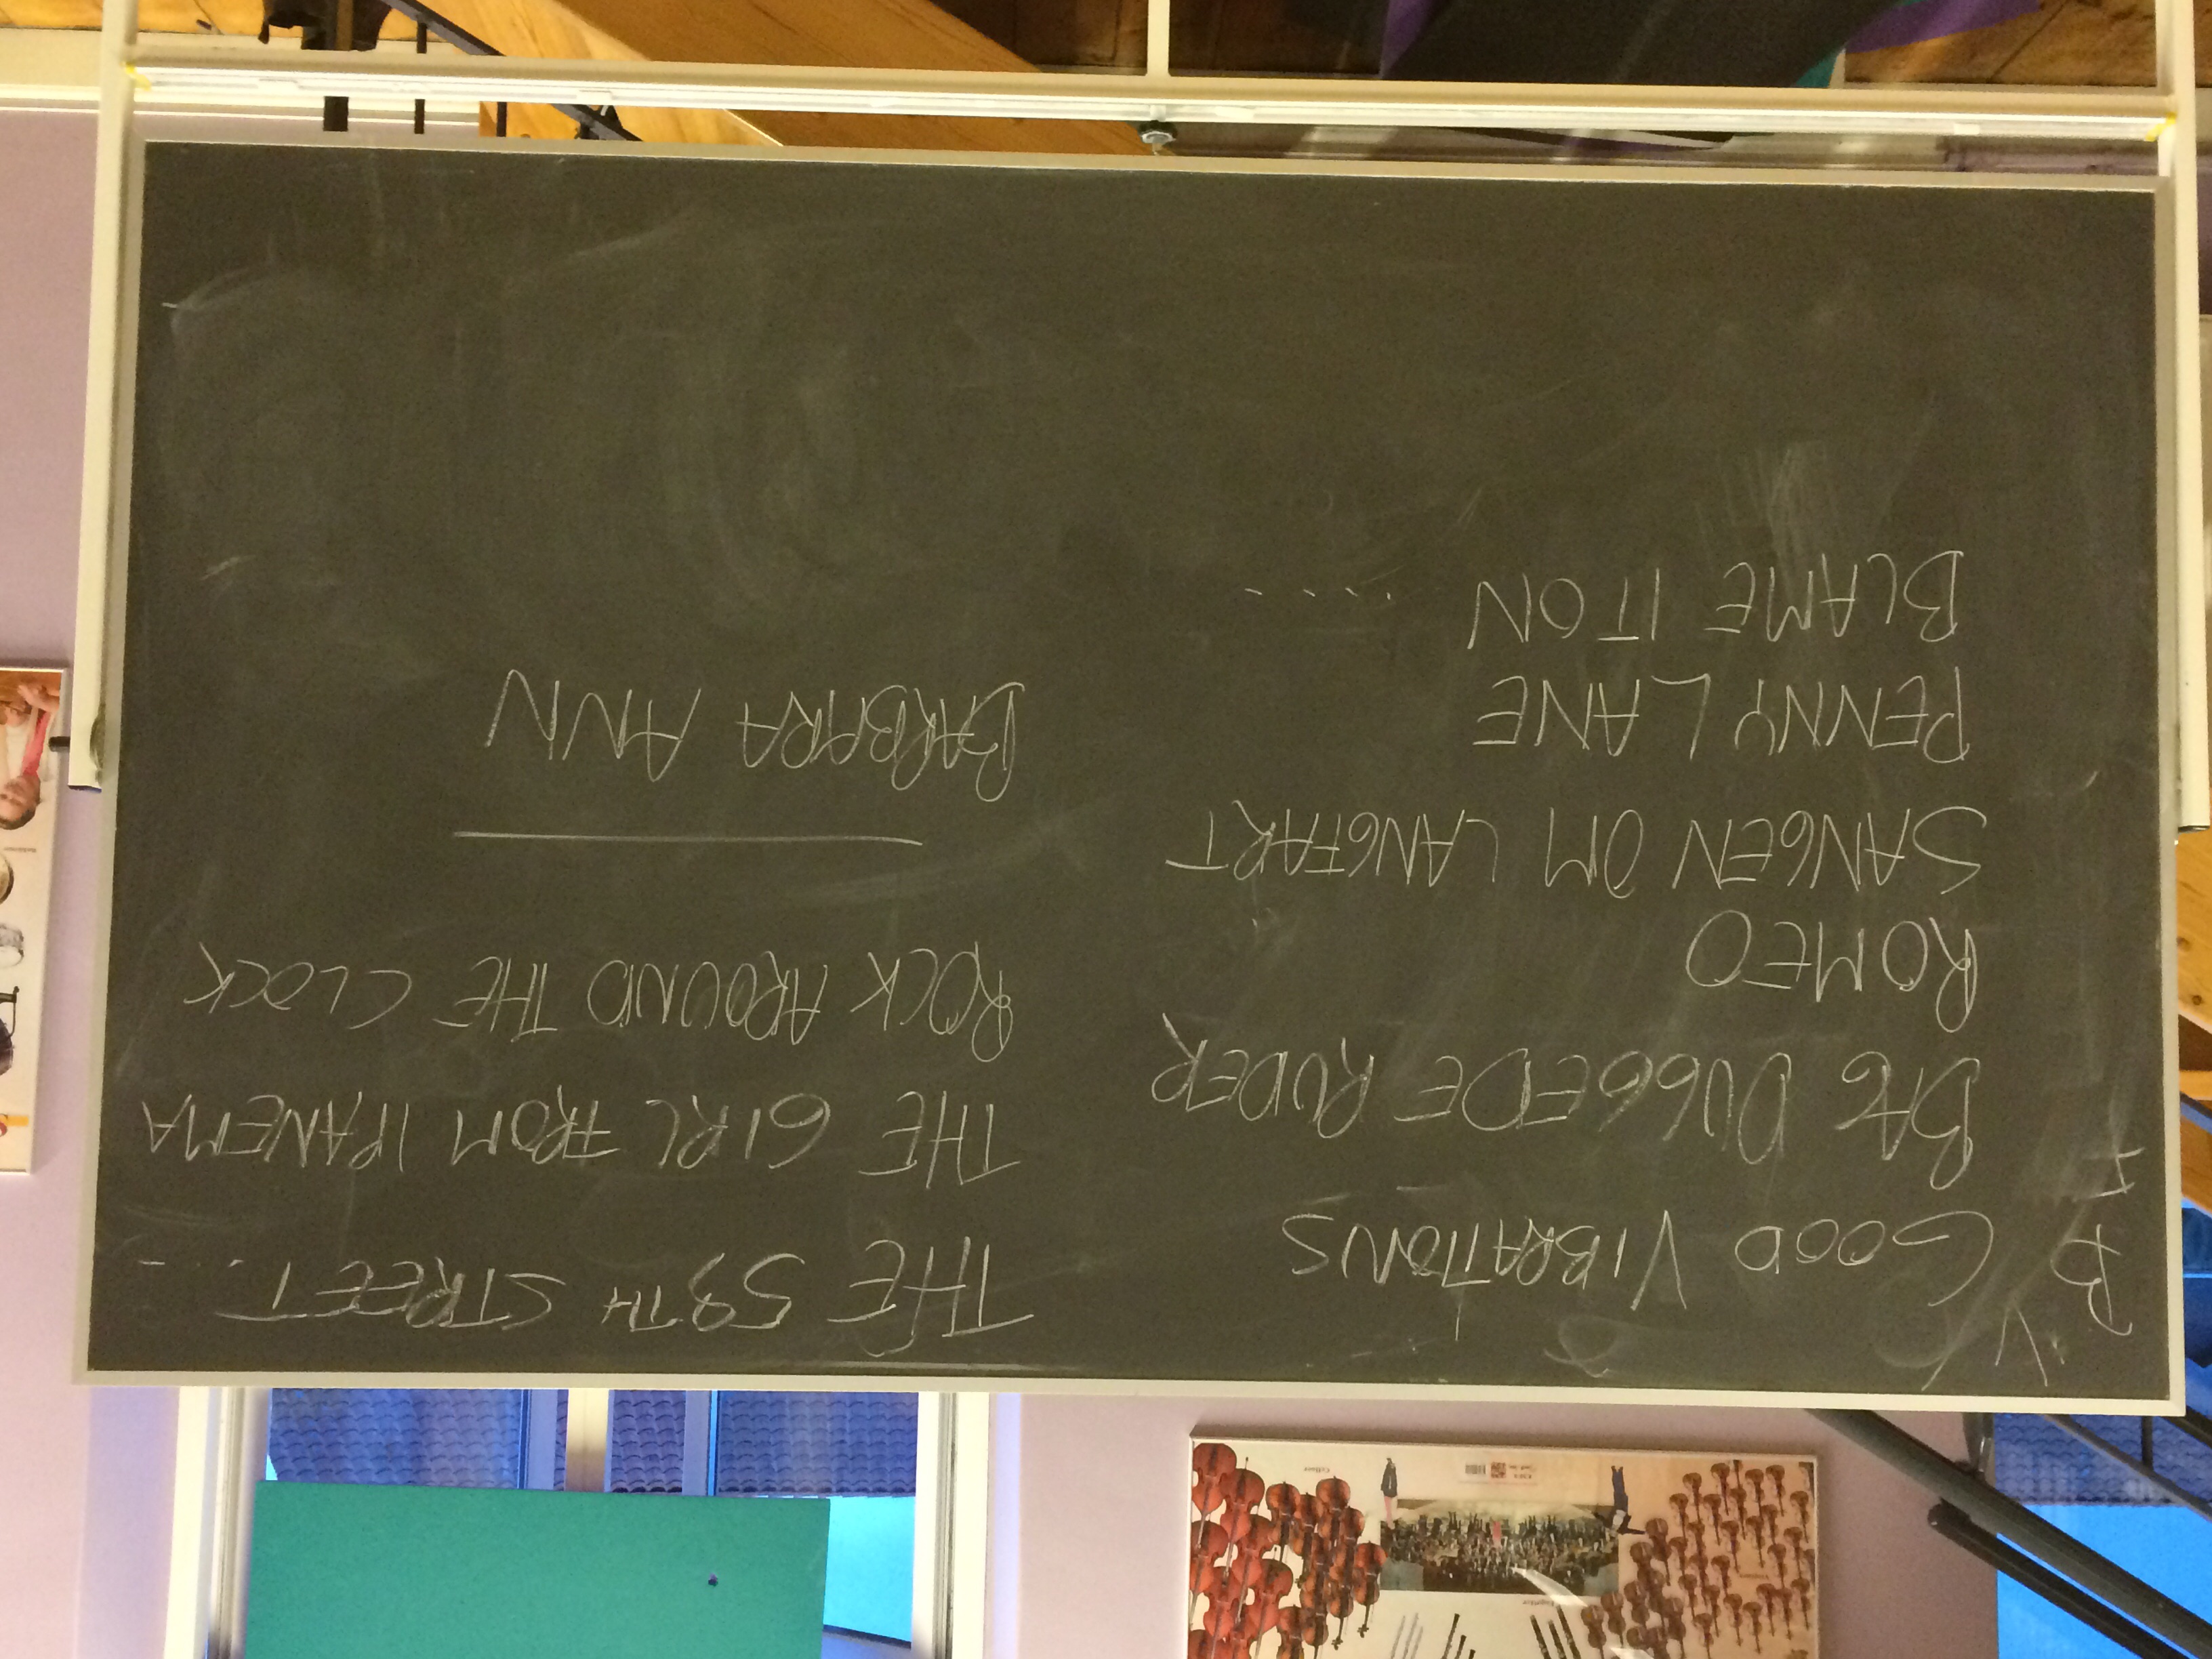 GOOD VIBRATIONS
BAG DUGGEDE RUDER
ROMEO
SANGEN OM LANGFART
PENNY LANE
BLAME IT ON ....
THE 59TH STREET ....
THE GIRL FROM IPANEMA
ROCK AROUND THE CLOCK
BARBARA ANN